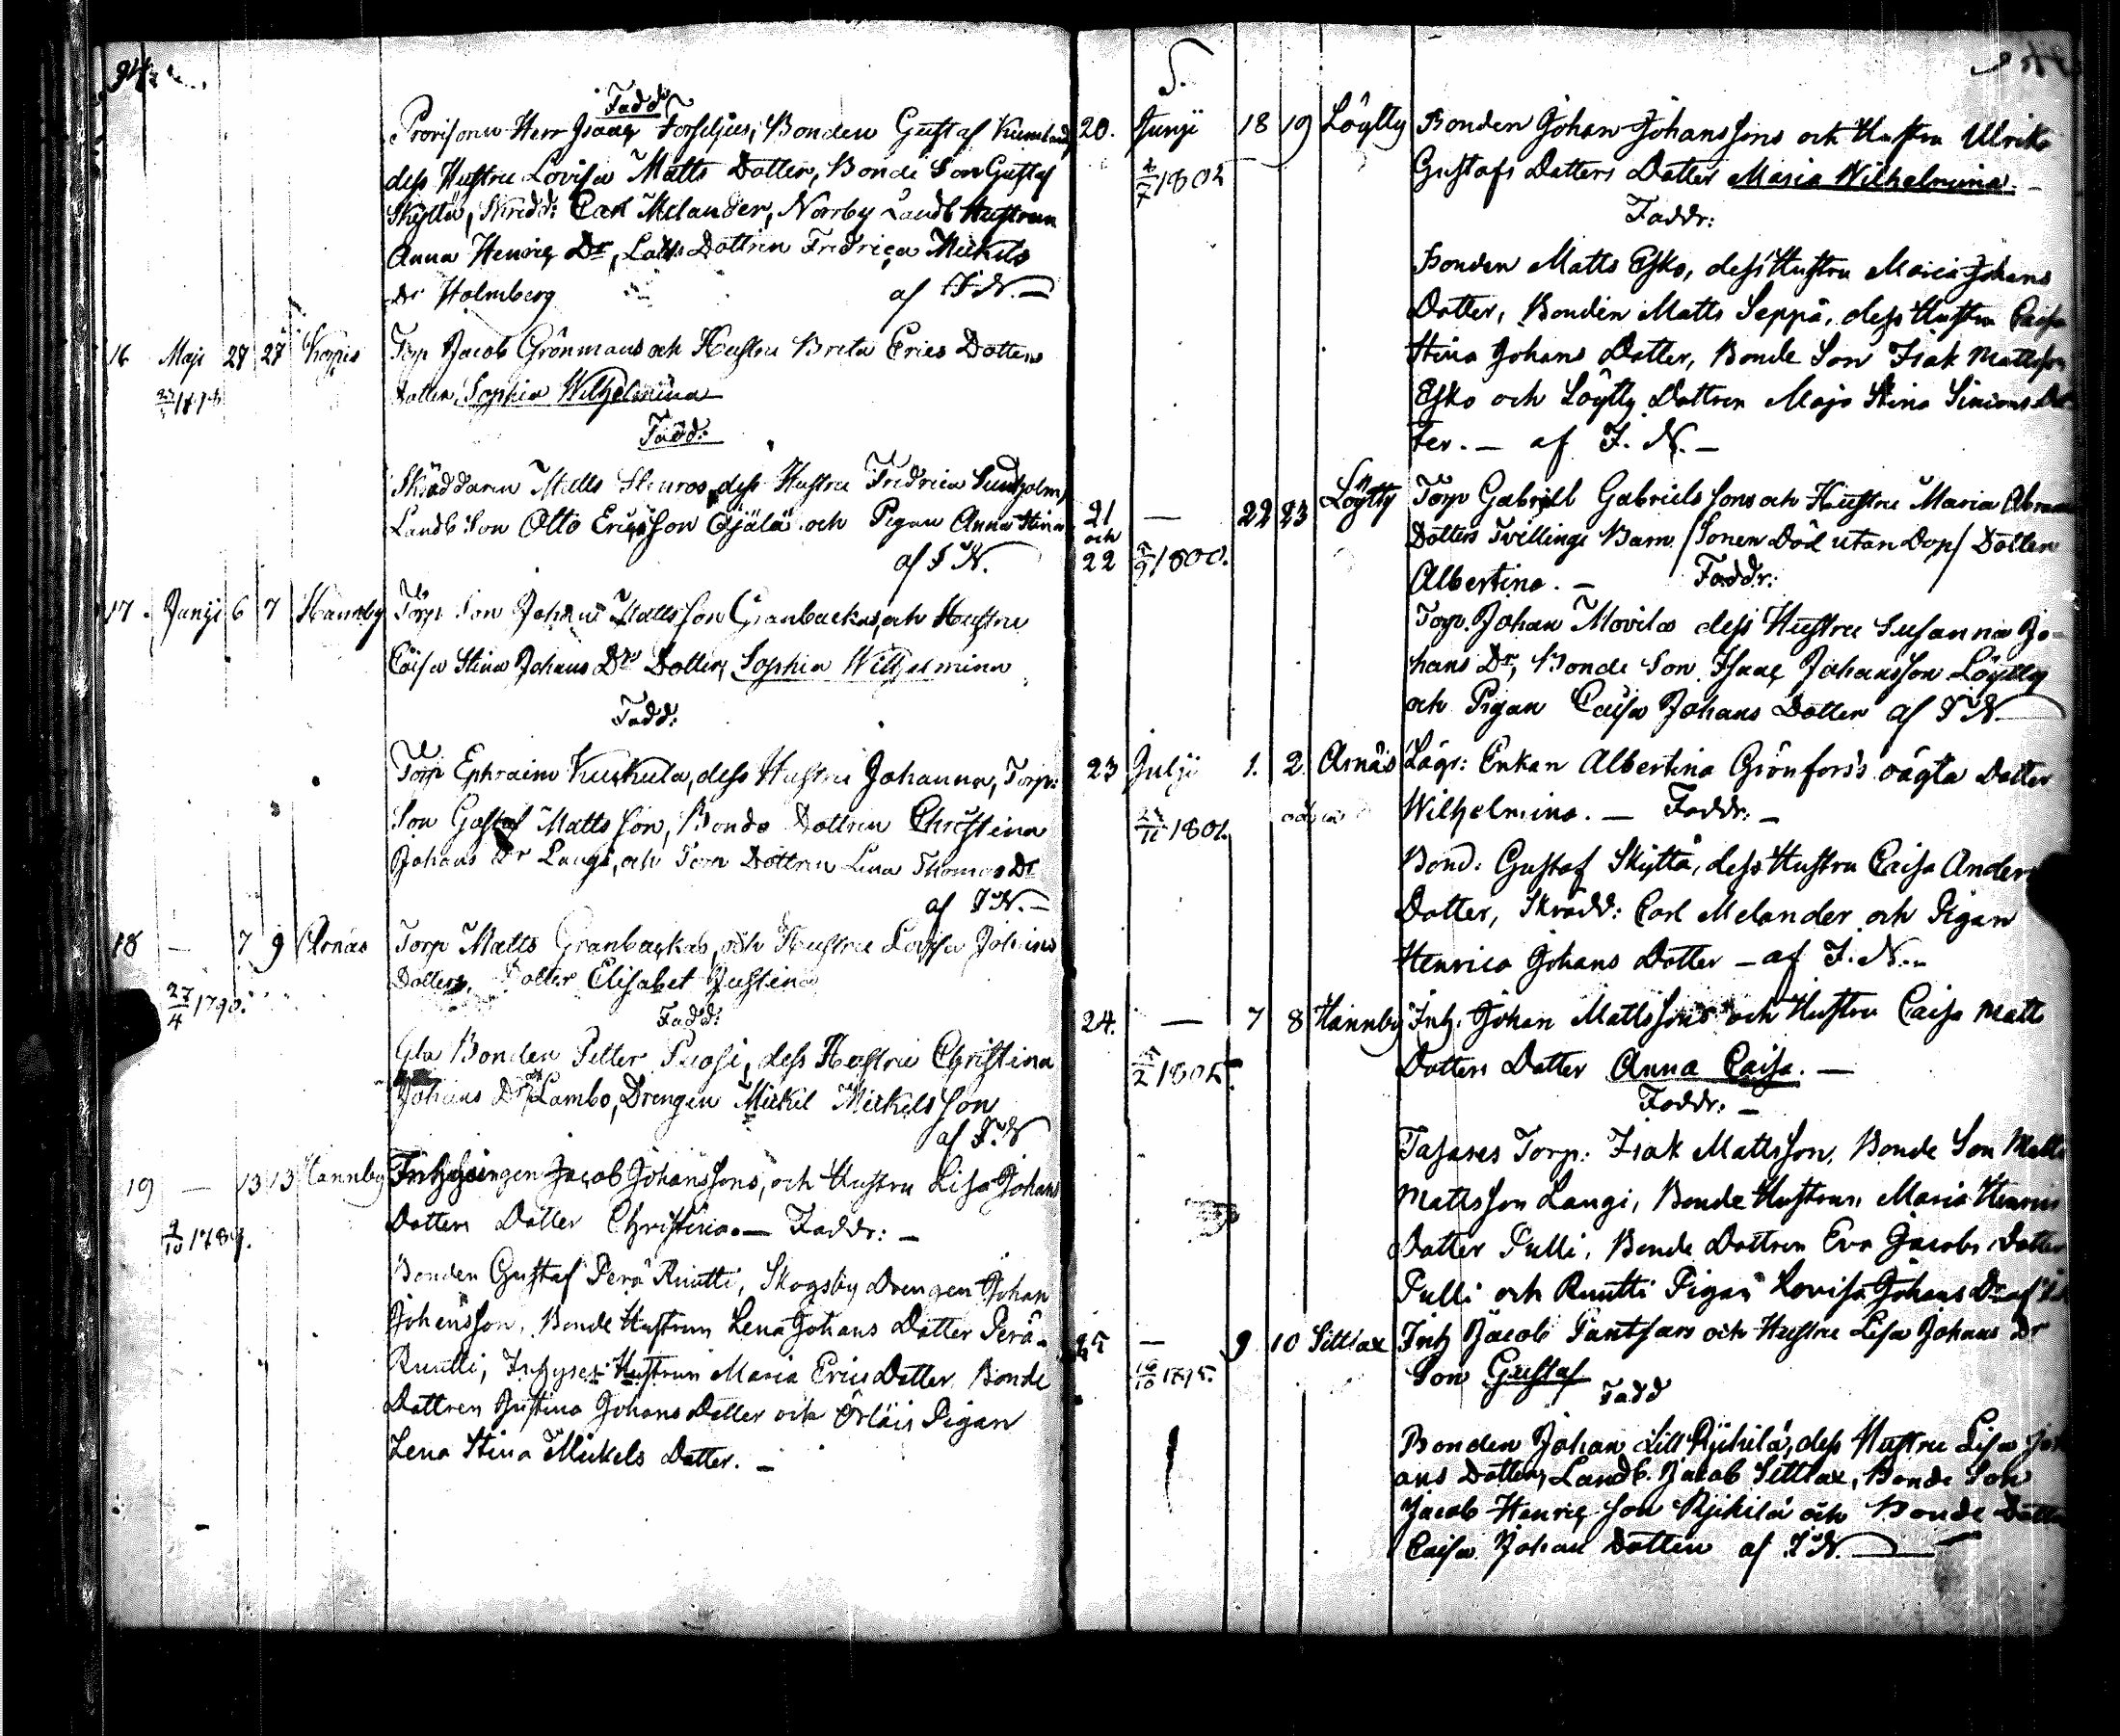 94.
Fadd:
Provisoren Herr Isaac Forselius, Bonden Gustaf
dess Hustru Lovisa Matts Dotter, Bonde Son Gustaf
Skyttä, Skredd: Carl Melander, Norrby Landb Hustrun
Anna Henric Dr, Dottren Fredrica Mickels
Dr Holmberg af I N. —
16 Maji 27 27 Korpis Torp Jacob Grönmans och Hustru Brita Erics Dotters
Dotter Sophia Wilhelmina
Fadd:
Skräddaren Matts dess Hustru Fredrica Sundholm,
Landb Son Otto Ericsson Öjälä och Pigan Anna Stina
af I N.
17. Junji 6 7 Hannby Torp Son Johan Mattsson Granbackas, och Hustru
Caisa Stina Johans Drs Dotter, Sophia Wilhelmina
Fadd:
Torp Ephraim Kuskula, dess Hustru Johanna, Torp:
Son Gustaf Mattsson, Bonde Dottren Christina
Johans Dr Laugi, och Torp Dottren Lena Thomas Dr
af I N. —
18 — 7 9 Arnäs Torp Matts Granbackas, och Hustru Lovisa Johans
27/4 1790. Dotters, Dotter Elisabet Justina
Fadd:
Gla Bonden Petter Puosi, dess Hustru Christina
Johans Dr Lambo, Drengen Mickel Mickelsson
af I. N
19 — 13 13 Hannby Inhysingen Jacob Johanssons, och Hustru Lisa Johans
Dotters Dotter Christina. — Faddr: —
Bonden Gustaf Perä Ruutti, Skogsby Drengen Johan
Johansson, Bonde Hustrun Lena Johans Dotter Perä-
Ruutti, Inhyses Hustrun Maria Erics Dotter, Bonde
Dottren Justina Johans Dotter och Örläis Pigan
Lena Stina Mickels Dotter. —
20. Junji 18 19 Löytty Bonden Johan Johanssons och Hustru Ulrika
Gustafs Dotters Dotter Maria Wilhelmina. —
Faddr:
Bonden Matts Esko, dess Hustru Maria Johans
Dotter, Bonden Matts Seppä, dess Hustru Caisa
Stina Johans Dotter, Bonde Son Isak Mattsson
Esko och Löytty Dottren Maja Stina Simons Dot-
ter. — af I. N. —
21 och 22 — 22 23 Löytty Torp Gabriell Gabrielssons och Hustru Maria Abrams
Dotters Tvillinge Barn /Sonen Död utan Dop/ Dotter
Albertina. — Faddr:
Torp. Johan Movila dess Hustru Susanna Jo-
hans Dr, Bonde Son Isaac Johansson Löytty
och Pigan Caisa Johans Dotter af I N
23 Julji 1. 2. Arnäs Enkan Albertina Grönfors's oägta Dotter
Wilhelmina. — Faddr: —
Bond: Gustaf Skyttä, dess Hustru Caisa Anders
Dotter, Skrädd: Carl Melander och Pigan
Henrica Johans Dotter — af I. N. —
24. — 7 8 Hannby Inh. Johan Mattssons och Hustru Caisa Matts
Dotters Dotter Anna Caisa. —
Faddr: —
Torp: Isak Mattsson, Bonde Son Matts
Mattsson Laugi, Bonde Hustrun Maria Henrics
Dotter Pulli, Bonde Dottren Eva Jacobs Dotter
Pulli och Ruutti Pigan Lovisa Johans Dr af
25 — 9 10 Sittlax Inh Jacob Pantsars och Hustru Lisa Johans Dr
Son Gustaf
Fadd
Bonden Johan Lill Ryhilä, dess Hustru Lisa Joh
ans Dotter, Landb. Jacob Sittlax, Bonde Son
Jacob Henricsson Ryhilä och Bonde Dotter
Caisa Johan Dotter af I N.